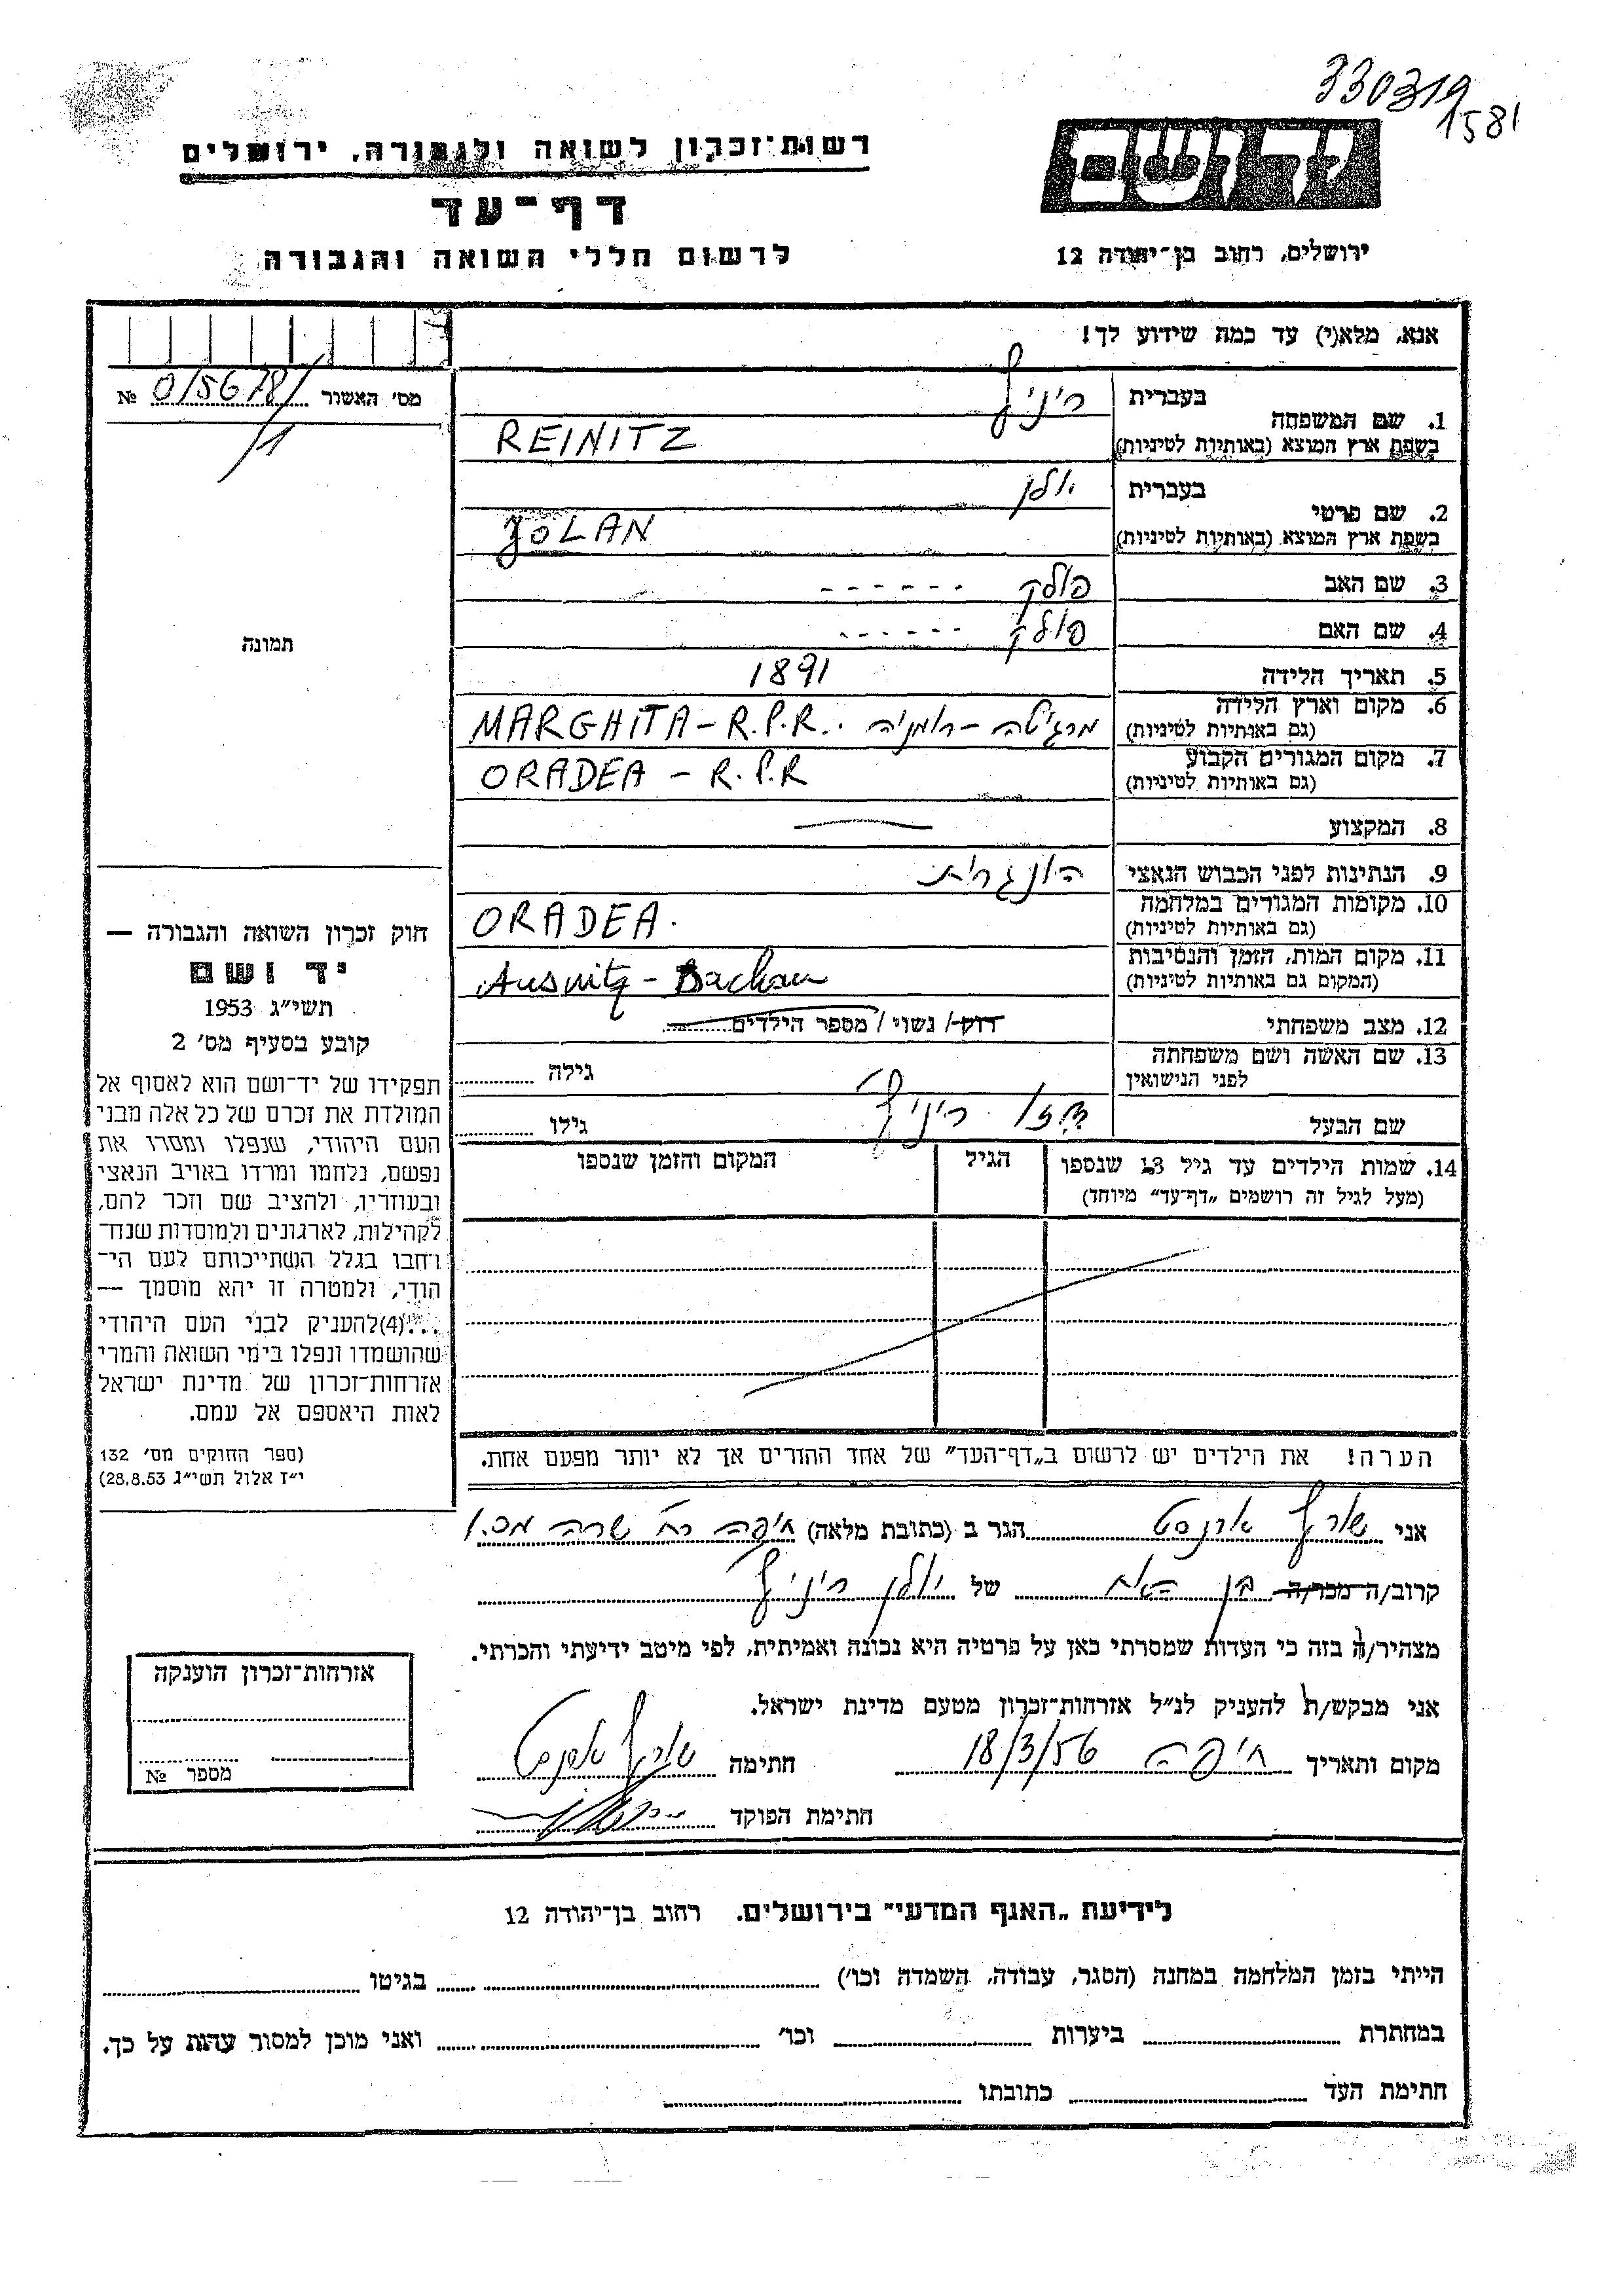 330319
1581
רשות־זכרון לשואה ולגבורה, ירושלים
דף־עד
לרשום חללי השואה והגבורה
יד ושם
ירושלים, רחוב בן־יהודה 12
אנא, מלא(י) עד כמה שידוע לך!
מס׳ האשור № 0/5678/
1
1. שם המשפחה
בעברית ריניץ
בשפת ארץ המוצא (באותיות לטיניות) REINITZ
2. שם פרטי
בעברית יולן
בשפת ארץ המוצא (באותיות לטיניות) JOLAN
3. שם האב פולק - - - - - -
4. שם האם פולק - - - - - -
תמונה
5. תאריך הלידה 1891
6. מקום וארץ הלידה
(גם באותיות לטיניות) מרגיטה – רומניה MARGHITA – R.P.R.
7. מקום המגורים הקבוע
(גם באותיות לטיניות) ORADEA – R.P.R
8. המקצוע —
9. הנתינות לפני הכבוש הנאצי הונגרית
10. מקומות המגורים במלחמה
(גם באותיות לטיניות) ORADEA.
11. מקום המות, הזמן והנסיבות
(המקום גם באותיות לטיניות) Ausvitz – Dachau
12. מצב משפחתי רוק/ נשוי / מספר הילדים
13. שם האשה ושם משפחתה
לפני הנישואין גילה
שם הבעל ריניץ גילו
14. שמות הילדים עד גיל 13 שנספו
(מעל לגיל זה רושמים „דף־עד״ מיוחד)
הגיל
המקום והזמן שנספו
הערה! את הילדים יש לרשום ב„דף־העד״ של אחד ההורים אך לא יותר מפעם אחת.
חוק זכרון השואה והגבורה —
יד ושם
תשי״ג 1953
קובע בסעיף מס׳ 2
תפקידו של יד־ושם הוא לאסוף אל
המולדת את זכרם של כל אלה מבני
העם היהודי, שנפלו ומסרו את
נפשם, נלחמו ומרדו באויב הנאצי
ובעוזריו, ולהציב שם וזכר להם,
לקהילות, לארגונים ולמוסדות שנח־
רבו בגלל השתייכותם לעם הי־
הודי, ולמטרה זו יהא מוסמך —
...(4)להעניק לבני העם היהודי
שהושמדו ונפלו בימי השואה והמרי
אזרחות־זכרון של מדינת ישראל
לאות היאספם אל עמם.
(ספר החוקים מס׳ 132
י״ז אלול תשי״ג 28.8.53)
אני שורץ ארנסט הגר ב (כתובת מלאה) חיפה רח׳ שרה מס.1
קרוב/ה מכר/ה בן האח של יולן ריניץ
מצהיר/ה בזה כי העדות שמסרתי כאן על פרטיה היא נכונה ואמיתית, לפי מיטב ידיעתי והכרתי.
אני מבקש/ת להעניק לנ״ל אזרחות־זכרון מטעם מדינת ישראל.
מקום ותאריך חיפה 18/3/56 חתימה שורץ ארנסט
חתימת הפוקד
אזרחות־זכרון הוענקה
מספר №
לידיעת „האגף המדעי״ בירושלים. רחוב בן־יהודה 12
הייתי בזמן המלחמה במחנה (הסגר, עבודה, השמדה וכו׳) בגיטו
במחתרת ביערות וכו׳ ואני מוכן למסור עדות על כך.
חתימת העד כתובתו